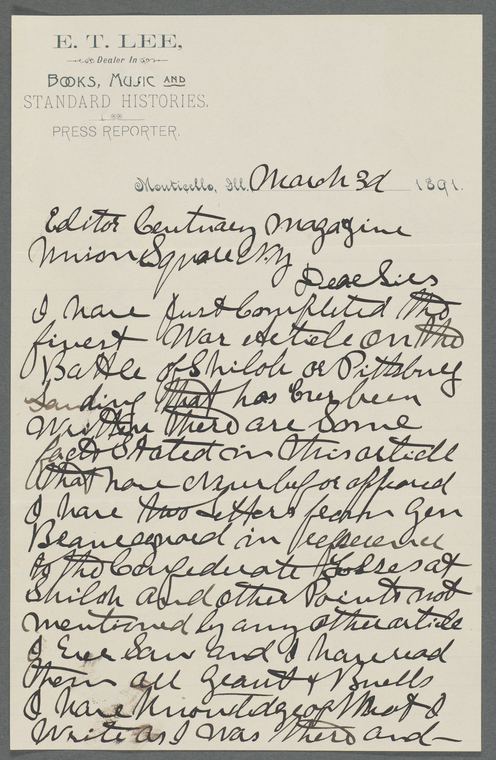 E. T. LEE,
Dealer In
BOOKS, MUSIC AND
STANDARD HISTORIES.
PRESS REPORTER.
Monticello, Ill. March 3d 1891.
Editor Century Magazine
Union Square N.Y
Dear Sirs
I have just Completed the
finest War Article on the
Battle of Shiloh or Pittsburg
Landing that has Ever been
Written there are Some
facts Stated in this article
that have never before appeared
I have two Letters from Gen
Beauregard in reference
to the Confederate Losses at
Shiloh and other Points not
mentioned by any other article
I Ever Saw and I have read
them all Grant & Buells
I have Knowledge of What I
Write as I was there and